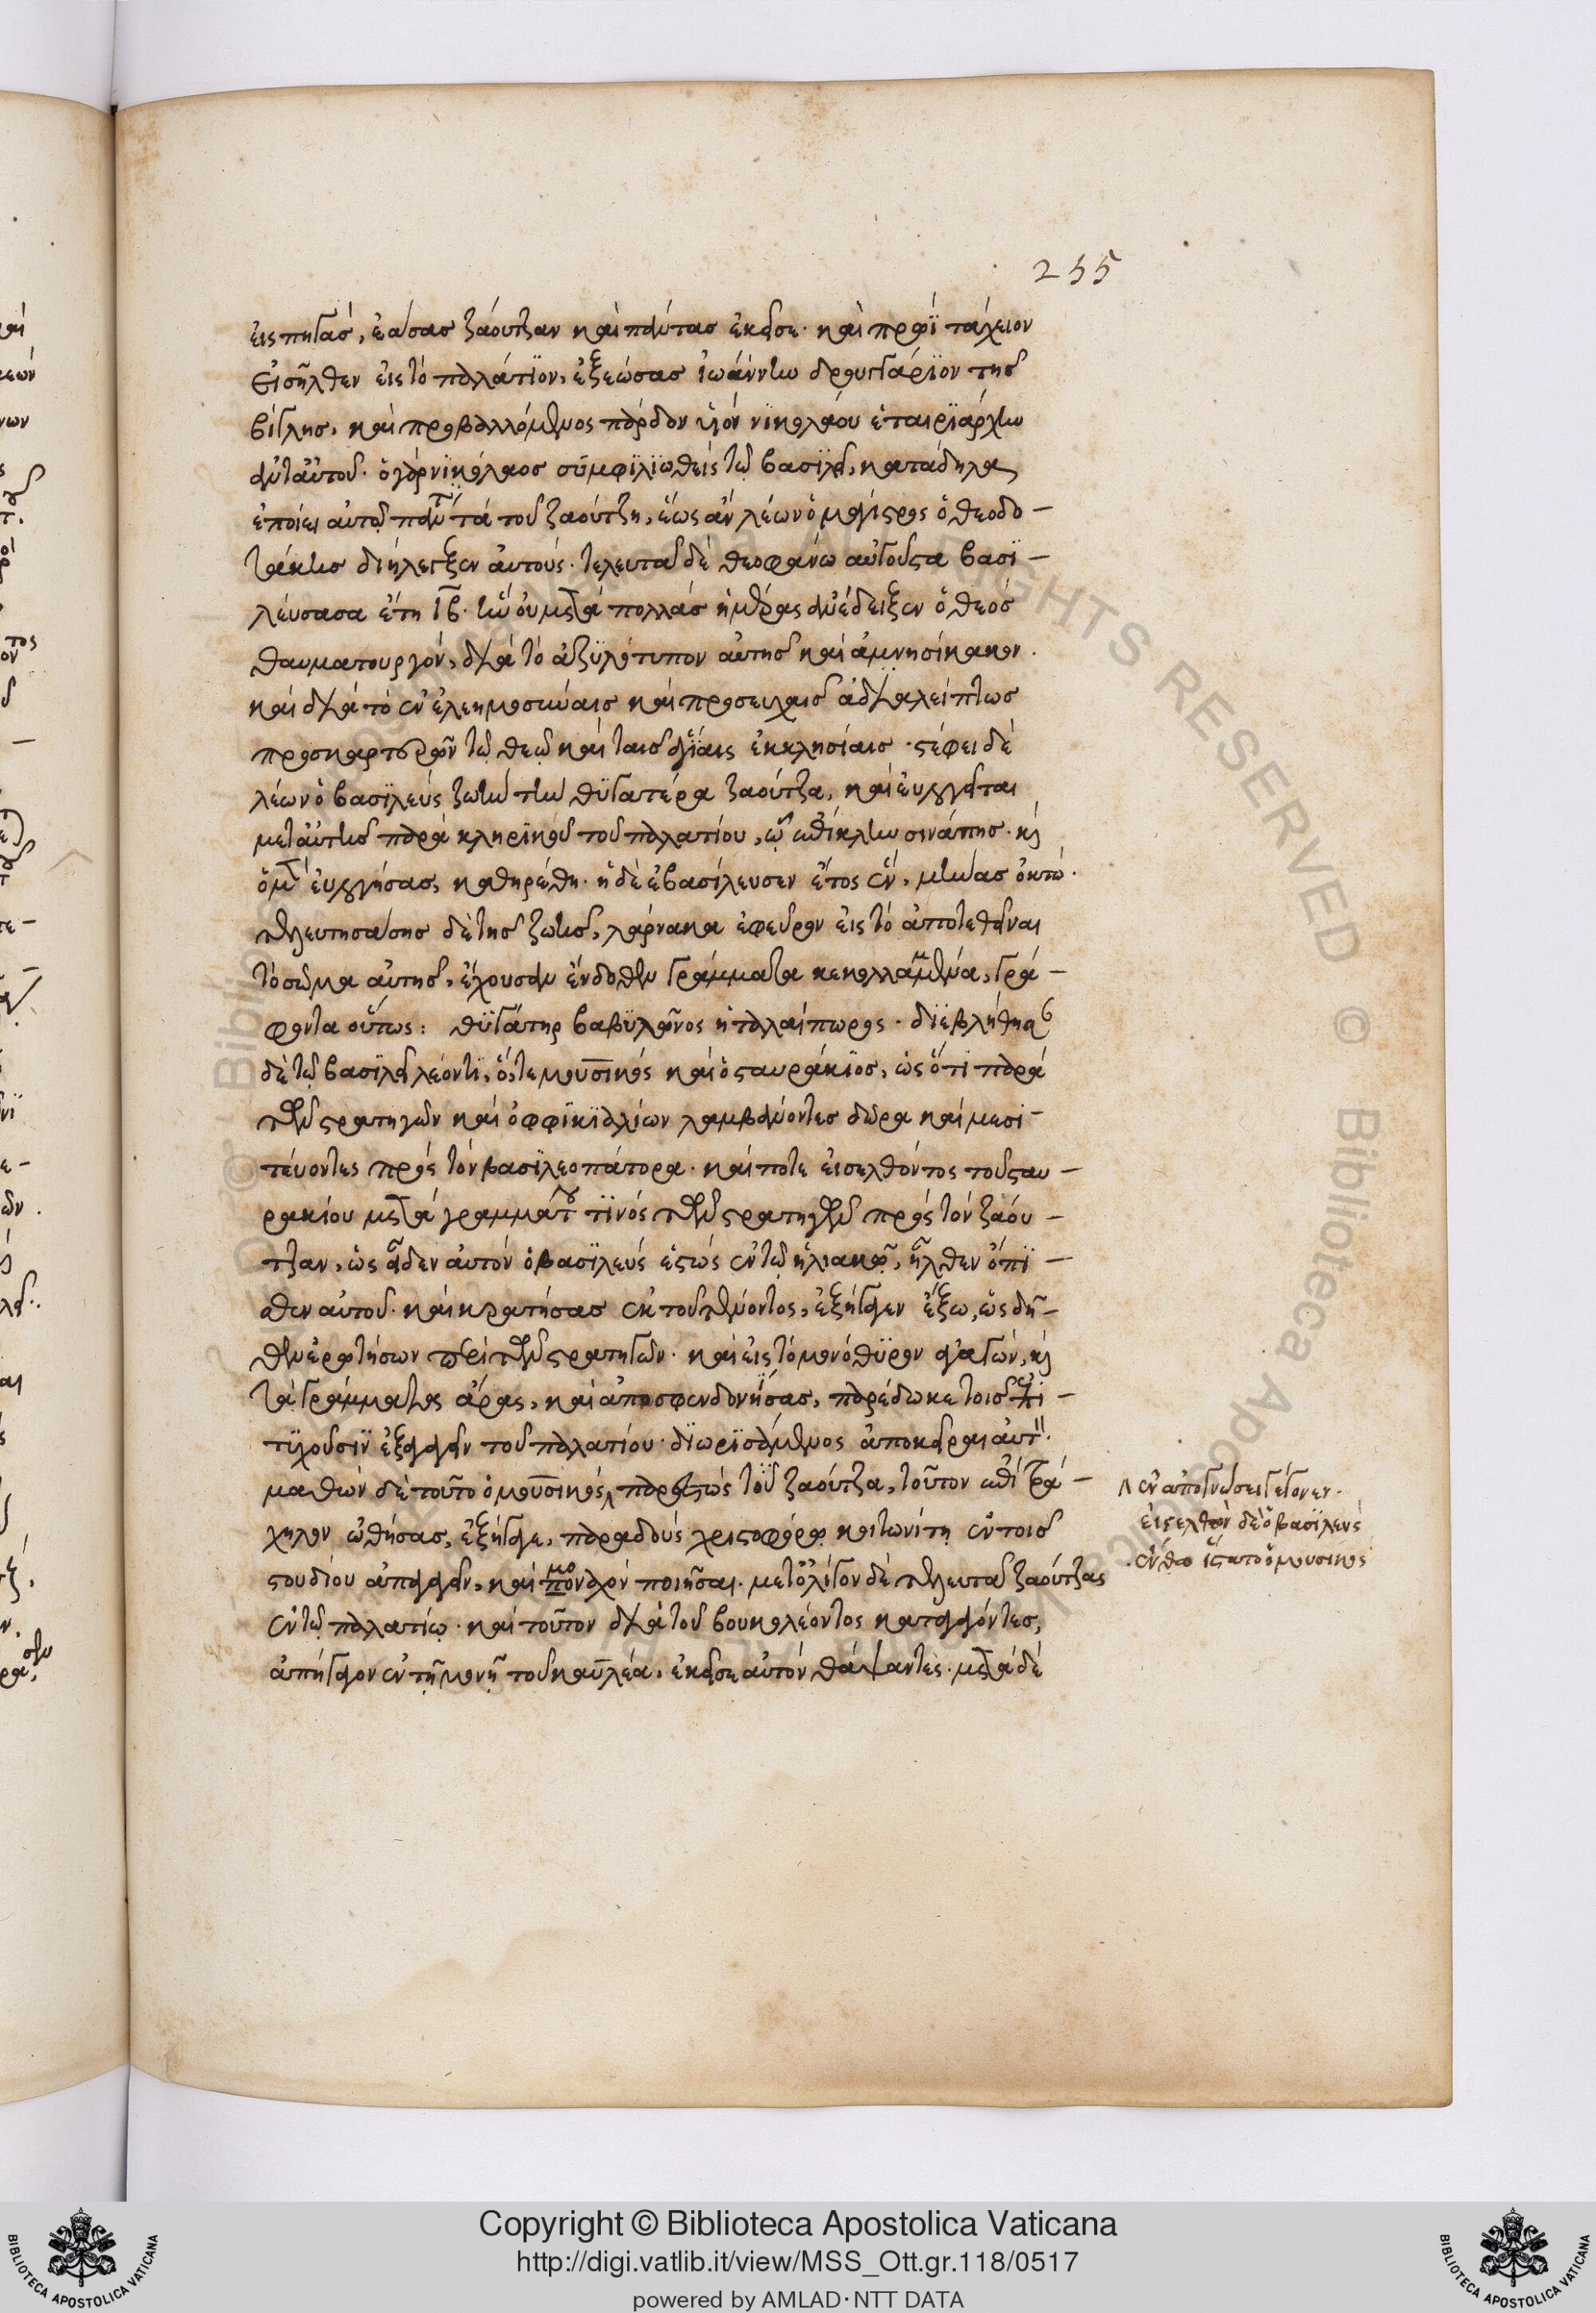 255
εἰς πηγὰς, ἐάσας ζαούτζαν καὶ πάντας ἐκεῖσε· καὶ πρωῒ τάχειον
Εἰσῆλθεν εἰς τὸ παλάτϊον, ἐξεώσας ἰωάννην δρουγγάριον τῆς
βίγλης, καὶ προβαλλόμενος πάρδον ὑϊὸν νϊκολάου ἑταιρϊάρχην
ἀντ αὐτοῦ· ὁ γὰρ νϊκόλαος συμφϊλϊωθεὶς τῷ βασϊλεῖ, κατάδηλα
ἐποίει αὐτῷ πάντα τὰ τοῦ ζαούτζη, ἕως ἂν λέων ὁ μάγιστρος ὁ θεοδο-
τάκης διήλεγξεν αὐτούς· τελευτᾶ δὲ θεοφάνω αὐγοῦστα βασϊ-
λεύσασα ἔτη ιβ· ἣν οὐ μετὰ πολλὰς ἡμέρας ἀνέδειξεν ὁ θεὸς
θαυματουργόν, διὰ τὸ ἀζϋλότυπον αὐτῆς καὶ ἀμνησίκακον.
καὶ διὰ τὸ ἐν ἐλεημοσύναις καὶ προσευχαῖς ἀδιαλείπτως
προσκαρτερῶν τῷ θεῷ καὶ ταῖς ἁγίαις ἐκκλησίαις· στέφει δὲ
λέων ὁ βασϊλεὺς ζωὴν τὴν θϋγατέρα ζαούτζα, καὶ εὐλογεῖται
μετ αὐτῆς παρὰ κληρϊκοῦ τοῦ παλατίου, ᾧ ἐπίκλην σινάπης· κ
ὁ μὲν εὐλογήσας, καθηρέθη· ἡ δὲ ἐβασίλευσεν ἔτος ἓν, μῆνας ὀκτώ.
τελευτησάσης δὲ τῆς ζωῆς, λάρνακα ἐφεῦρον εἰς τὸ ἀποτεθῆναι
τὸ σῶμα αὐτῆς, ἔχουσαν ἔνδοθεν γράμματα κεκολλαμμένα, γρά-
φοντα οὕτως: θϋγάτηρ βαβϋλῶνος ἡ ταλαίπωρος· διεβλήθησ
δὲ τῷ βασϊλεῖ λέοντϊ, ὅ,τε μουσικὸς καὶ ὁ σταυράκϊος, ὡς ὅτϊ παρὰ
τῶν στρατηγῶν καὶ ὀφφϊκϊαλίων λαμβάνοντες δῶρα καὶ μεσι-
τεύοντες πρὸς τὸν βασϊλεοπάτορα· καί ποτε εἰσελθόντος τοῦ σταυ-
ρακίου μετὰ γραμμάτ τϊνὸς τῶν στρατηγῶν πρὸς τὸν ζαού-
τζαν, ὡς εἶδεν αὐτὸν ὁ βασϊλεὺς ἑστὼς ἐν τῷ ἡλιακῷ, ἦλθεν ὄπϊ-
σθεν αὐτοῦ· καὶ κρατήσας ἐκ τοῦ τένοντος, ἐξήγαγεν ἔξω, ὡς δῆ-
θεν ἐρωτήσων περὶ τῶν στρατηγῶν· καὶ εἰς τὸ μονόθϋρον ἀγαγών, κ
τὰ γράμματα ἄρας, καὶ ἀποσφενδονήσας, παρέδωκε τοῖς ἐπι-
τϋχοῦσϊν ἐξαγαγεῖν τοῦ παλατίου· δϊωρϊσάμενος ἀποκεῖραι αὐτ.
μαθὼν δὲ τοῦτο ὁ μουσικὸς τοῦ ζαούτζα, τοῦτον ἐπὶ τρά-
χηλον ὠθήσας, ἐξήγαγε, παραδοὺς χριστοφόρῳ κοιτωνίτη ἐν τοῖς
στουδίου ἀπαγαγεῖν, καὶ μοναχὸν ποιῆσαι. μετ ὀλίγον δὲ τελευτᾶ ζαούτζας
ἐν τῷ παλατίῳ· καὶ τοῦτον διὰ τοῦ βουκολέοντος καταγαγόντες,
ἀπήγαγον ἐν τῇ μονῇ τοῦ καυλέα, ἐκεῖσε αὐτὸν θάψαντες· μετὰ δὲ
ἐν ἀπογνώσει γέγονεν.
εἰσελθὼν δὲ ὁ βασϊλεὺς
ἔνθα ἵστατο ὁ μουσικὸς
Copyright © Biblioteca Apostolica Vaticana
http://digi.vatlib.it/view/MSS_Ott.gr.118/0517
powered by AMLAD·NTT DATA